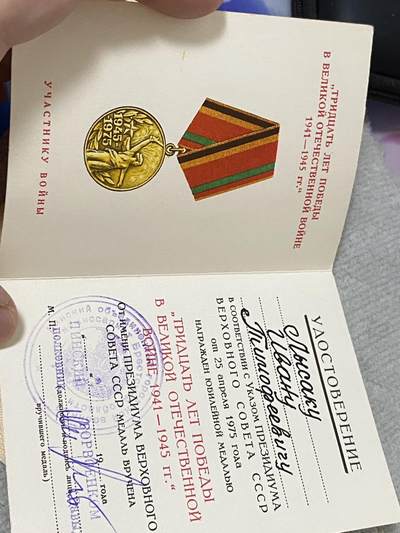 „ТРИДЦАТЬ ЛЕТ ПОБЕДЫ
В ВЕЛИКОЙ ОТЕЧЕСТВЕННОЙ ВОЙНЕ
1941—1945 гг.“
1945
1975
УЧАСТНИКУ ВОЙНЫ
УДОСТОВЕРЕНИЕ
Лысаку
Ивану
Тимофеевичу
В СООТВЕТСТВИИ С УКАЗОМ ПРЕЗИДИУМА
ВЕРХОВНОГО СОВЕТА СССР
от 25 апреля 1975 года
НАГРАЖДЕН ЮБИЛЕЙНОЙ МЕДАЛЬЮ
„ТРИДЦАТЬ ЛЕТ ПОБЕДЫ
В ВЕЛИКОЙ ОТЕЧЕСТВЕННОЙ
ВОЙНЕ 1941—1945 гг.“
От имени ПРЕЗИДИУМА ВЕРХОВНОГО
СОВЕТА СССР МЕДАЛЬ ВРУЧЕНА
19 года
ПИНСКИЙ ВОЕНКОМ
М. П.
вручившего медаль)